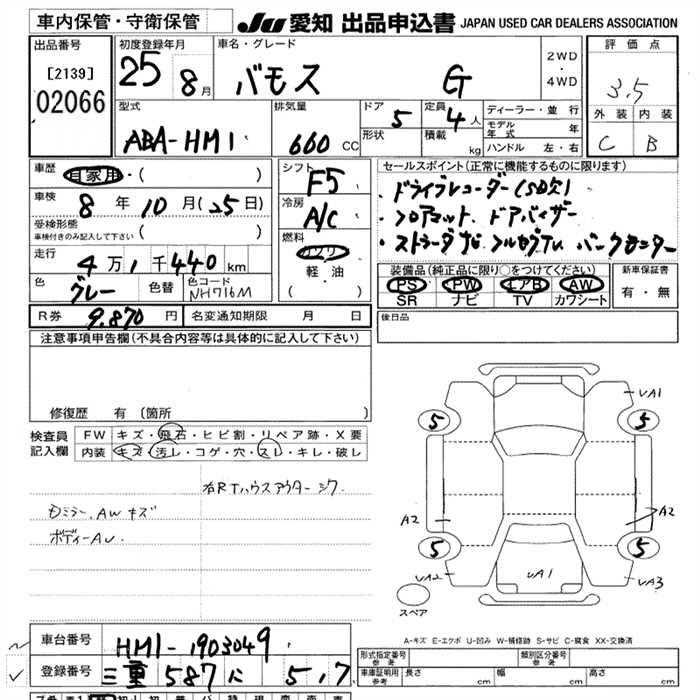 車内保管・守衛保管
JU 愛知 出品申込書 JAPAN USED CAR DEALERS ASSOCIATION
出品番号
[2139]
02066
初度登録年月
25 8月
車名・グレード
バモス G
2WD
・
4WD
評価点
3.5
外装 内装
C B
型式
ABA-HM1
排気量
660 CC
ドア
5
定員
4人
形状
積載
kg
ディーラー・並行
モデル年式 年
ハンドル 左・右
車歴
自家用・( )
車検
8年10月(25日)
受検形態
車検付きのみ記入して下さい ( )
走行
4万1千440km
色
グレー
色替
色コード
NH716M
シフト
F5
冷房
A/C
燃料
ガソリン
軽・油
・( )
セールスポイント(正常に機能するものに限ります)
・ドライブレコーダー(SD欠)
・フロアマット、ドアバイザー
・ストラーダナビ フルセグTV バックモニター
装備品(純正品に限り○をつけてください)
PS PW エアB AW
SR ナビ TV カワシート
新車保証書
有・無
R券
9.870円
名変通知期限 月 日
後日品
注意事項申告欄(不具合内容等は具体的に記入して下さい)
修復歴 有〔箇所 〕
検査員
記入欄
FW キズ・飛石・ヒビ割・リペア跡・X要
内装 キズ・汚レ・コゲ・穴・スレ・キレ・破レ
右RTハウスアウターシワ
ミラー、AWキズ
ボディーAU
UA1
5 5
A2 A2
5 5
UA2 UA1 UA3
スペア
A-キズ E-エクボ U-凹み W-補修跡 S-サビ C-腐食 XX-交換済
車台番号
HM1-1903049
登録番号
三重 587 に 517
形式指定番号
参考
類別区分番号
参考
車庫証明用
参考
長さ cm 幅 cm 高さ cm